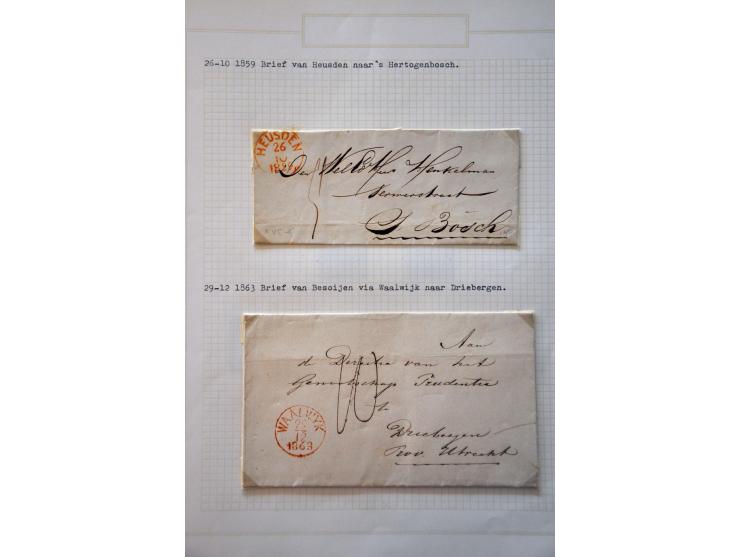 26-10 1859 Brief van Heusden naar's Hertogenbosch.
HEUSDEN
26
10
Den Heer Henkelman
S Bosch
29-12 1863 Brief van Besoijen via Waalwijk naar Driebergen.
Aan
de Directie van het
Genootschap Prudentia
te
Driebergen
Prov. Utrecht
10
WAALWYK
29
12
1863